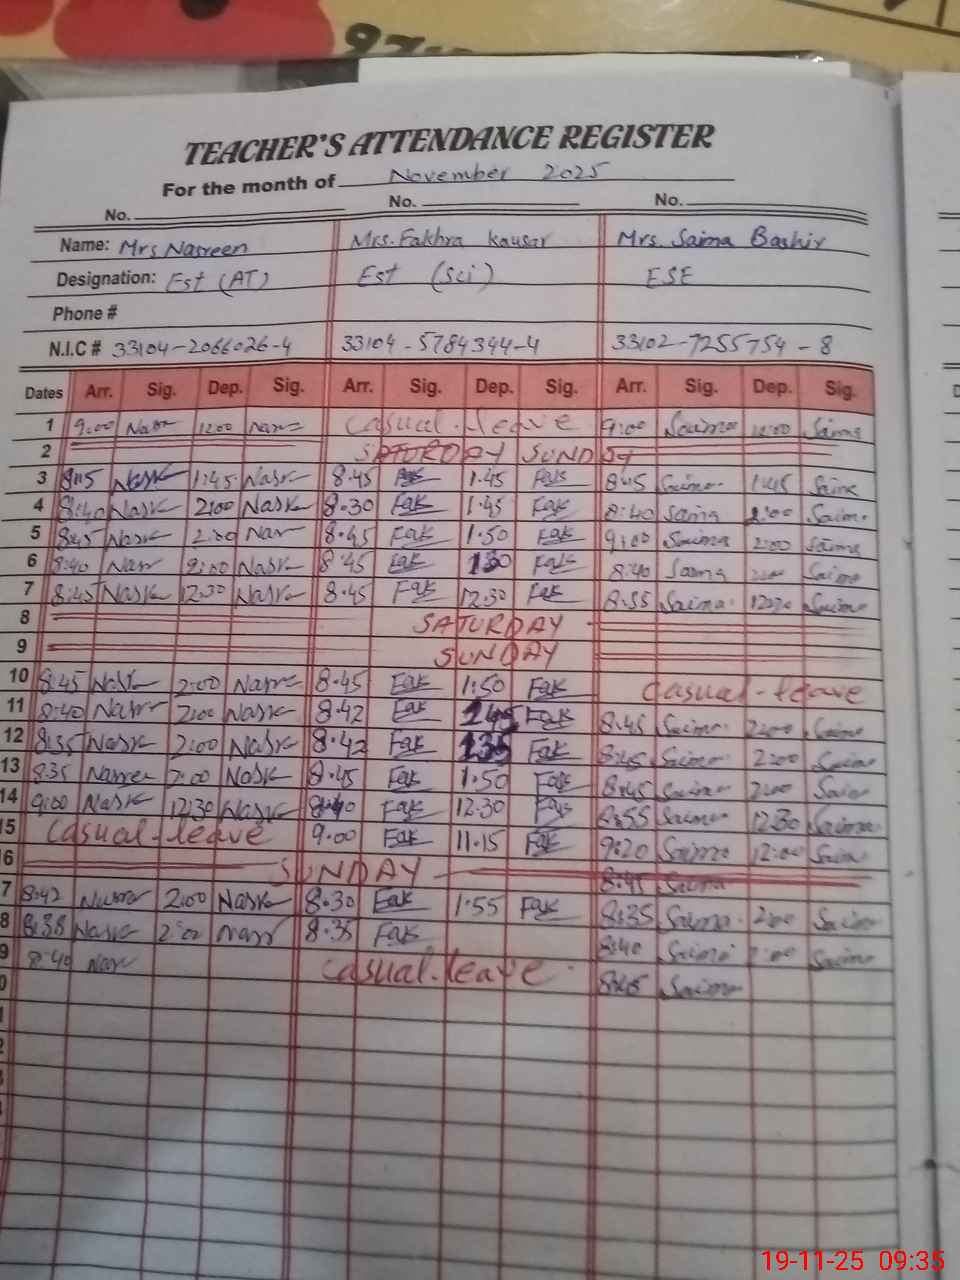 TEACHER'S ATTENDANCE REGISTER
For the month of November 2025
No. No. No.
Name: Mrs Nasreen Mrs. Fakhra Kausar Mrs. Saima Bashir
Designation: Est (AT) Est (Sci) ESE
Phone #
N.I.C # 33104-2066026-4 33104-5784344-4 33102-7255754-8
Dates Arr. Sig. Dep. Sig. Arr. Sig. Dep. Sig. Arr. Sig. Dep. Sig.
1 9:00 Nasr 12:00 Casual leave 9:00 Saima 12:00 Saima
2 SUNDAY
3 8:15 Nasr 1:45 Nasr 8.45 Fak 1.45 Fak 8:45 Saima 1:45 Saima
4 8:40 Nasr 2:00 Nasr 8.30 Fak 1.45 Fak 8:40 Saima 2:00 Saima
5 8:45 Nasr 2:00 Nasr 8.45 Fak 1.50 Fak 9:00 Saima 2:00 Saima
6 8:40 Nasr 2:00 Nasr 8.45 Fak 130 Fak 8:40 Saima 2:00 Saima
7 8:45 Nasr 12:30 Nasr 8.45 Fak 12.30 Fak 8:55 Saima 12:30 Saima
8 SATURDAY
9 SUNDAY
10 8:45 Nasr 2:00 Nasr 8.45 Fak 1:50 Fak Casual-leave
11 8:40 Nasr 2:00 Nasr 8.42 Fak 145 Fak 8:45 Saima 2:00 Saima
12 8:35 Nasr 2:00 Nasr 8.42 Fak 135 Fak 8:45 Saima 2:00 Saima
13 8:35 Nasr 2:00 Nasr 8.45 Fak 1.50 Fak 8:45 Saima 2:00 Saima
14 9:00 Nasr 12:30 Nasr 8:40 Fak 12.30 Fak 8:55 Saima 12:30 Saima
5 Casual-leave 9.00 Fak 11.15 Fak 9:20 Saima 12:00 Saima
6 SUNDAY 8:45 Saima
7 8:42 Nasr 2:00 Nasr 8.30 Fak 1.55 Fak 8:35 Saima 2:00 Saima
8 8:38 Nasr 2:00 Nasr 8.35 Fak 8:40 Saima 2:00 Saima
9 8:40 Nasr Casual-leave 8:45 Saima
0
1
2
19-11-25 09:35